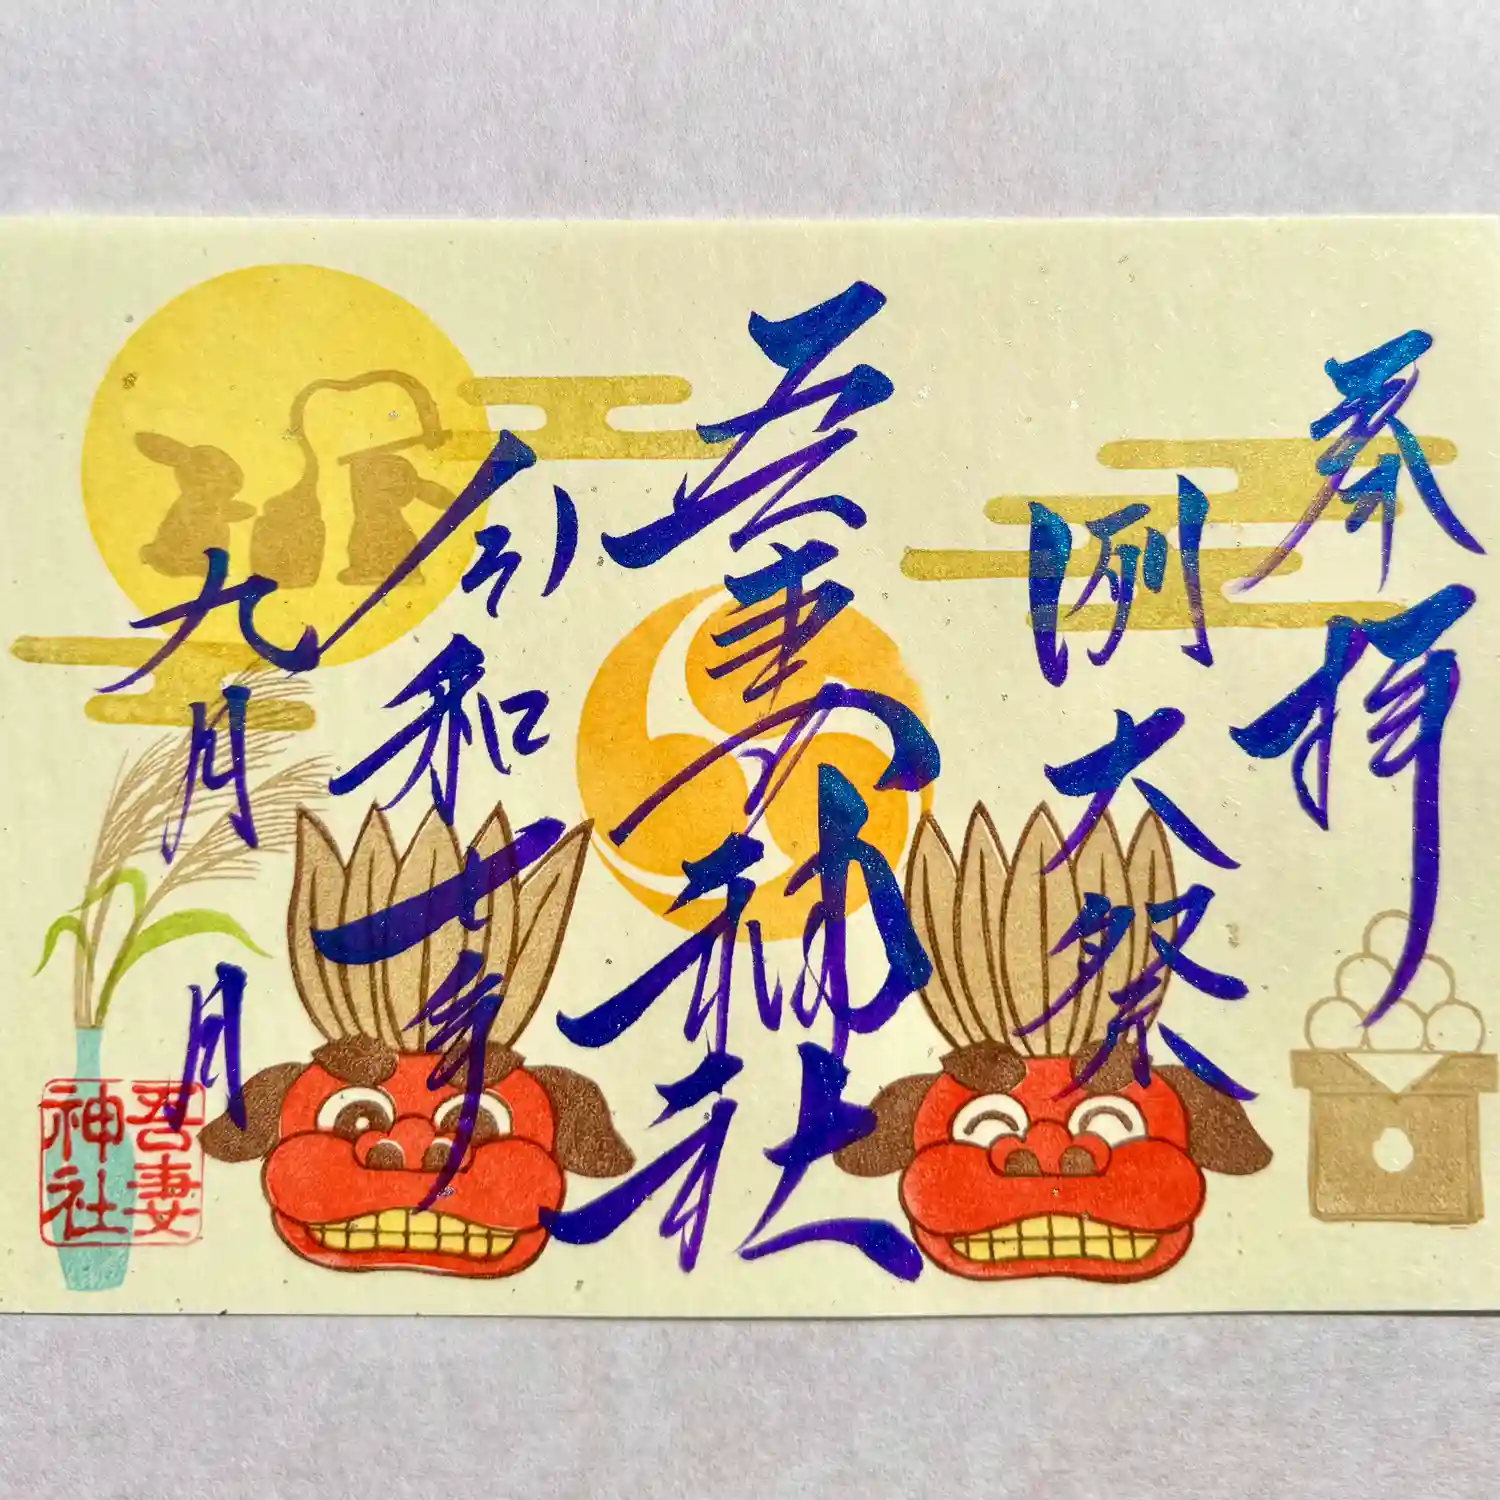 奉拝
例大祭
吾妻神社
令和七年
九月 日
吾妻
神社